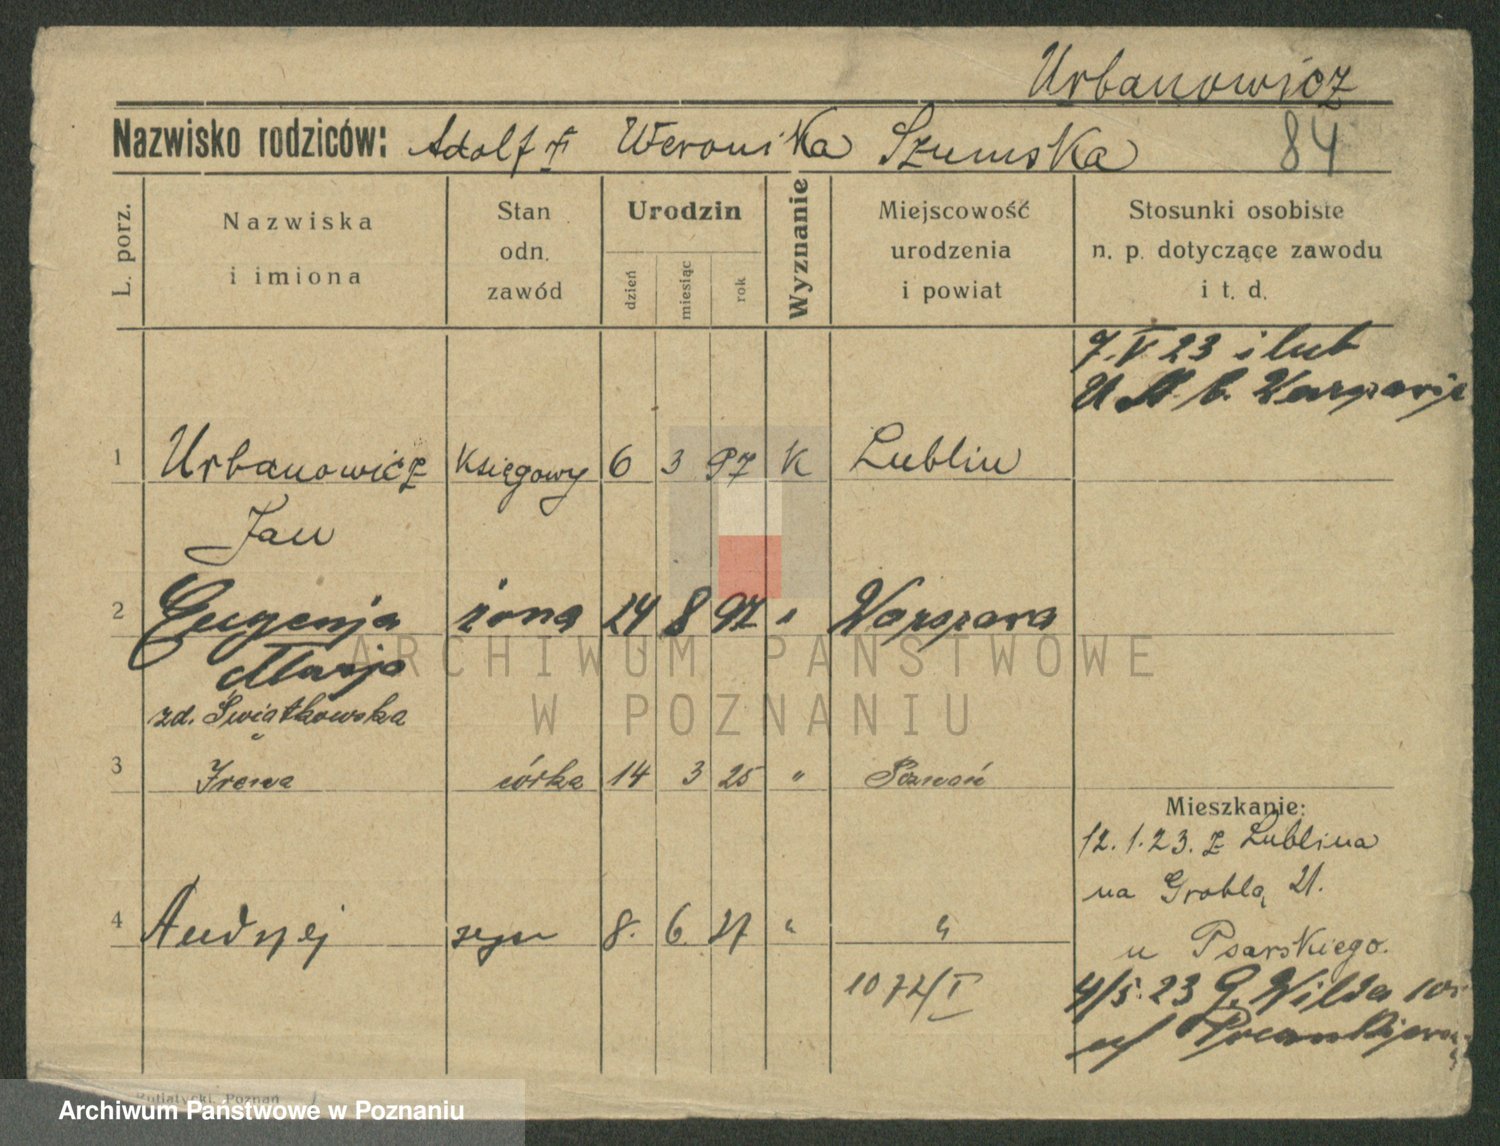 Urbanowicz
Nazwisko rodziców: Adolf Weronika Szumska
84
L. porz.
Nazwiska
i imiona
Stan
odn.
zawód
Urodzin
dzień
miesiąc
rok
Wyznanie
Miejscowość
urodzenia
i powiat
Stosunki osobiste
n. p. dotyczące zawodu
i t. d.
7. V. 23 i lub
1 Urbanowicz Księgowy 6 3 97 K Lublin
Jan
2 Eugenja żona 24 8 97 Warszawa
Marja
zd. Świątkowska
3 Irena córka 14 3 25 " Poznań
Mieszkanie:
12. 1. 23. z Lublina
na Groblą 21.
4 Andrzej syn 8. 6. 27 " "
u Psarskiego.
1072/I
4/5. 23 G. Wilda
ARCHIWUM PAŃSTWOWE
W POZNANIU
Putiatycki, Poznań
Archiwum Państwowe w Poznaniu